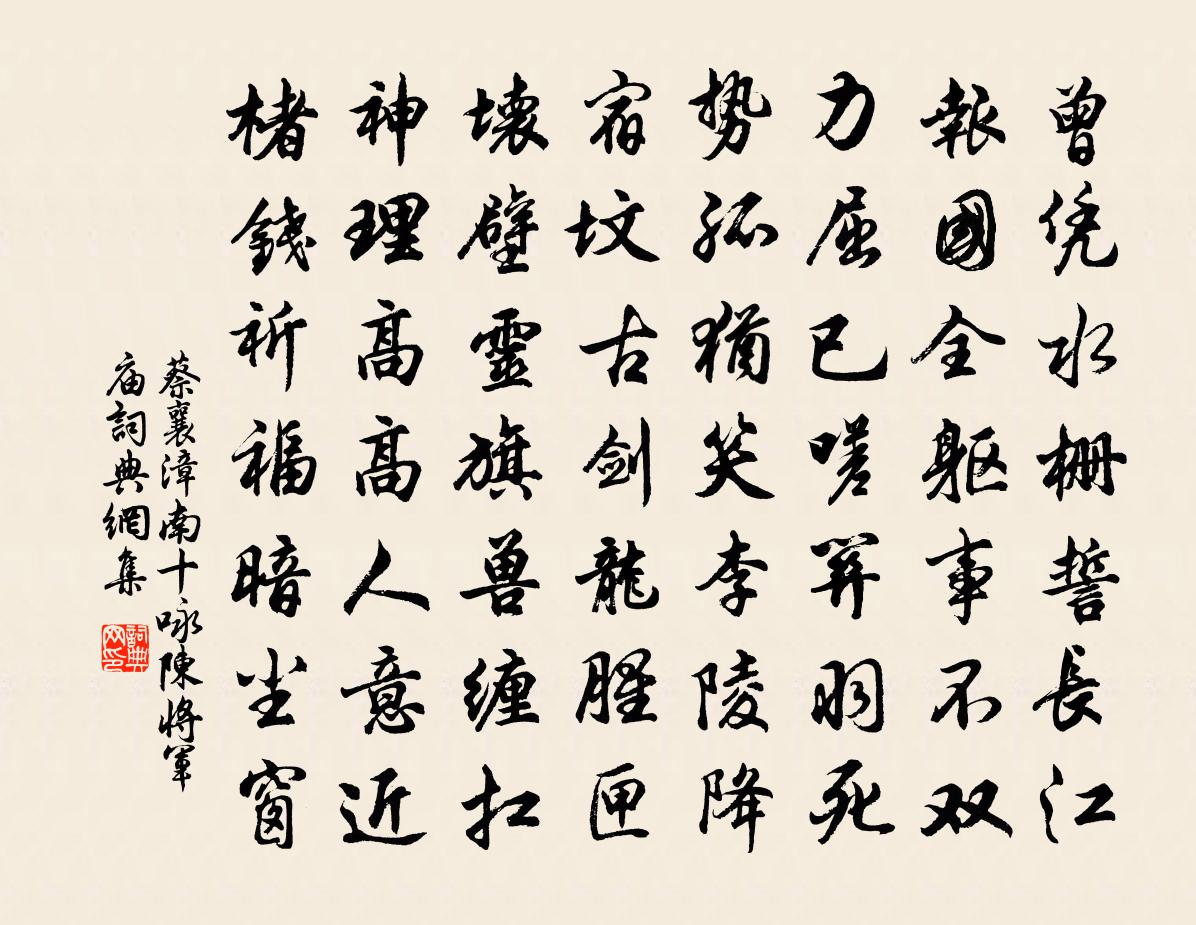 曾凭水栅誓長江
報國全躯事不双
力屈已嗟羿羽死
势孤猶笑李陵降
宿坟古剑龍腥匣
壊壁靈旗兽缠扛
神理高高人意近
楮錢祈福暗尘窗
蔡襄漳南十咏陳将軍
庙詞典網集
詞典网印